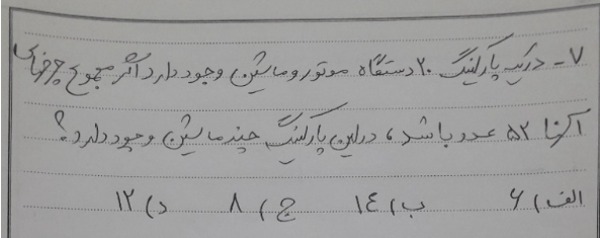 ۷- در یک پارکینگ ۲۰ دستگاه موتور و ماشین وجود دارد اگر مجموع چرخهای
آنها ۵۲ عدد باشد، در این پارکینگ چند ماشین وجود دارد؟
الف) ۶ ب) ۱۴ ج) ۸ د) ۱۲